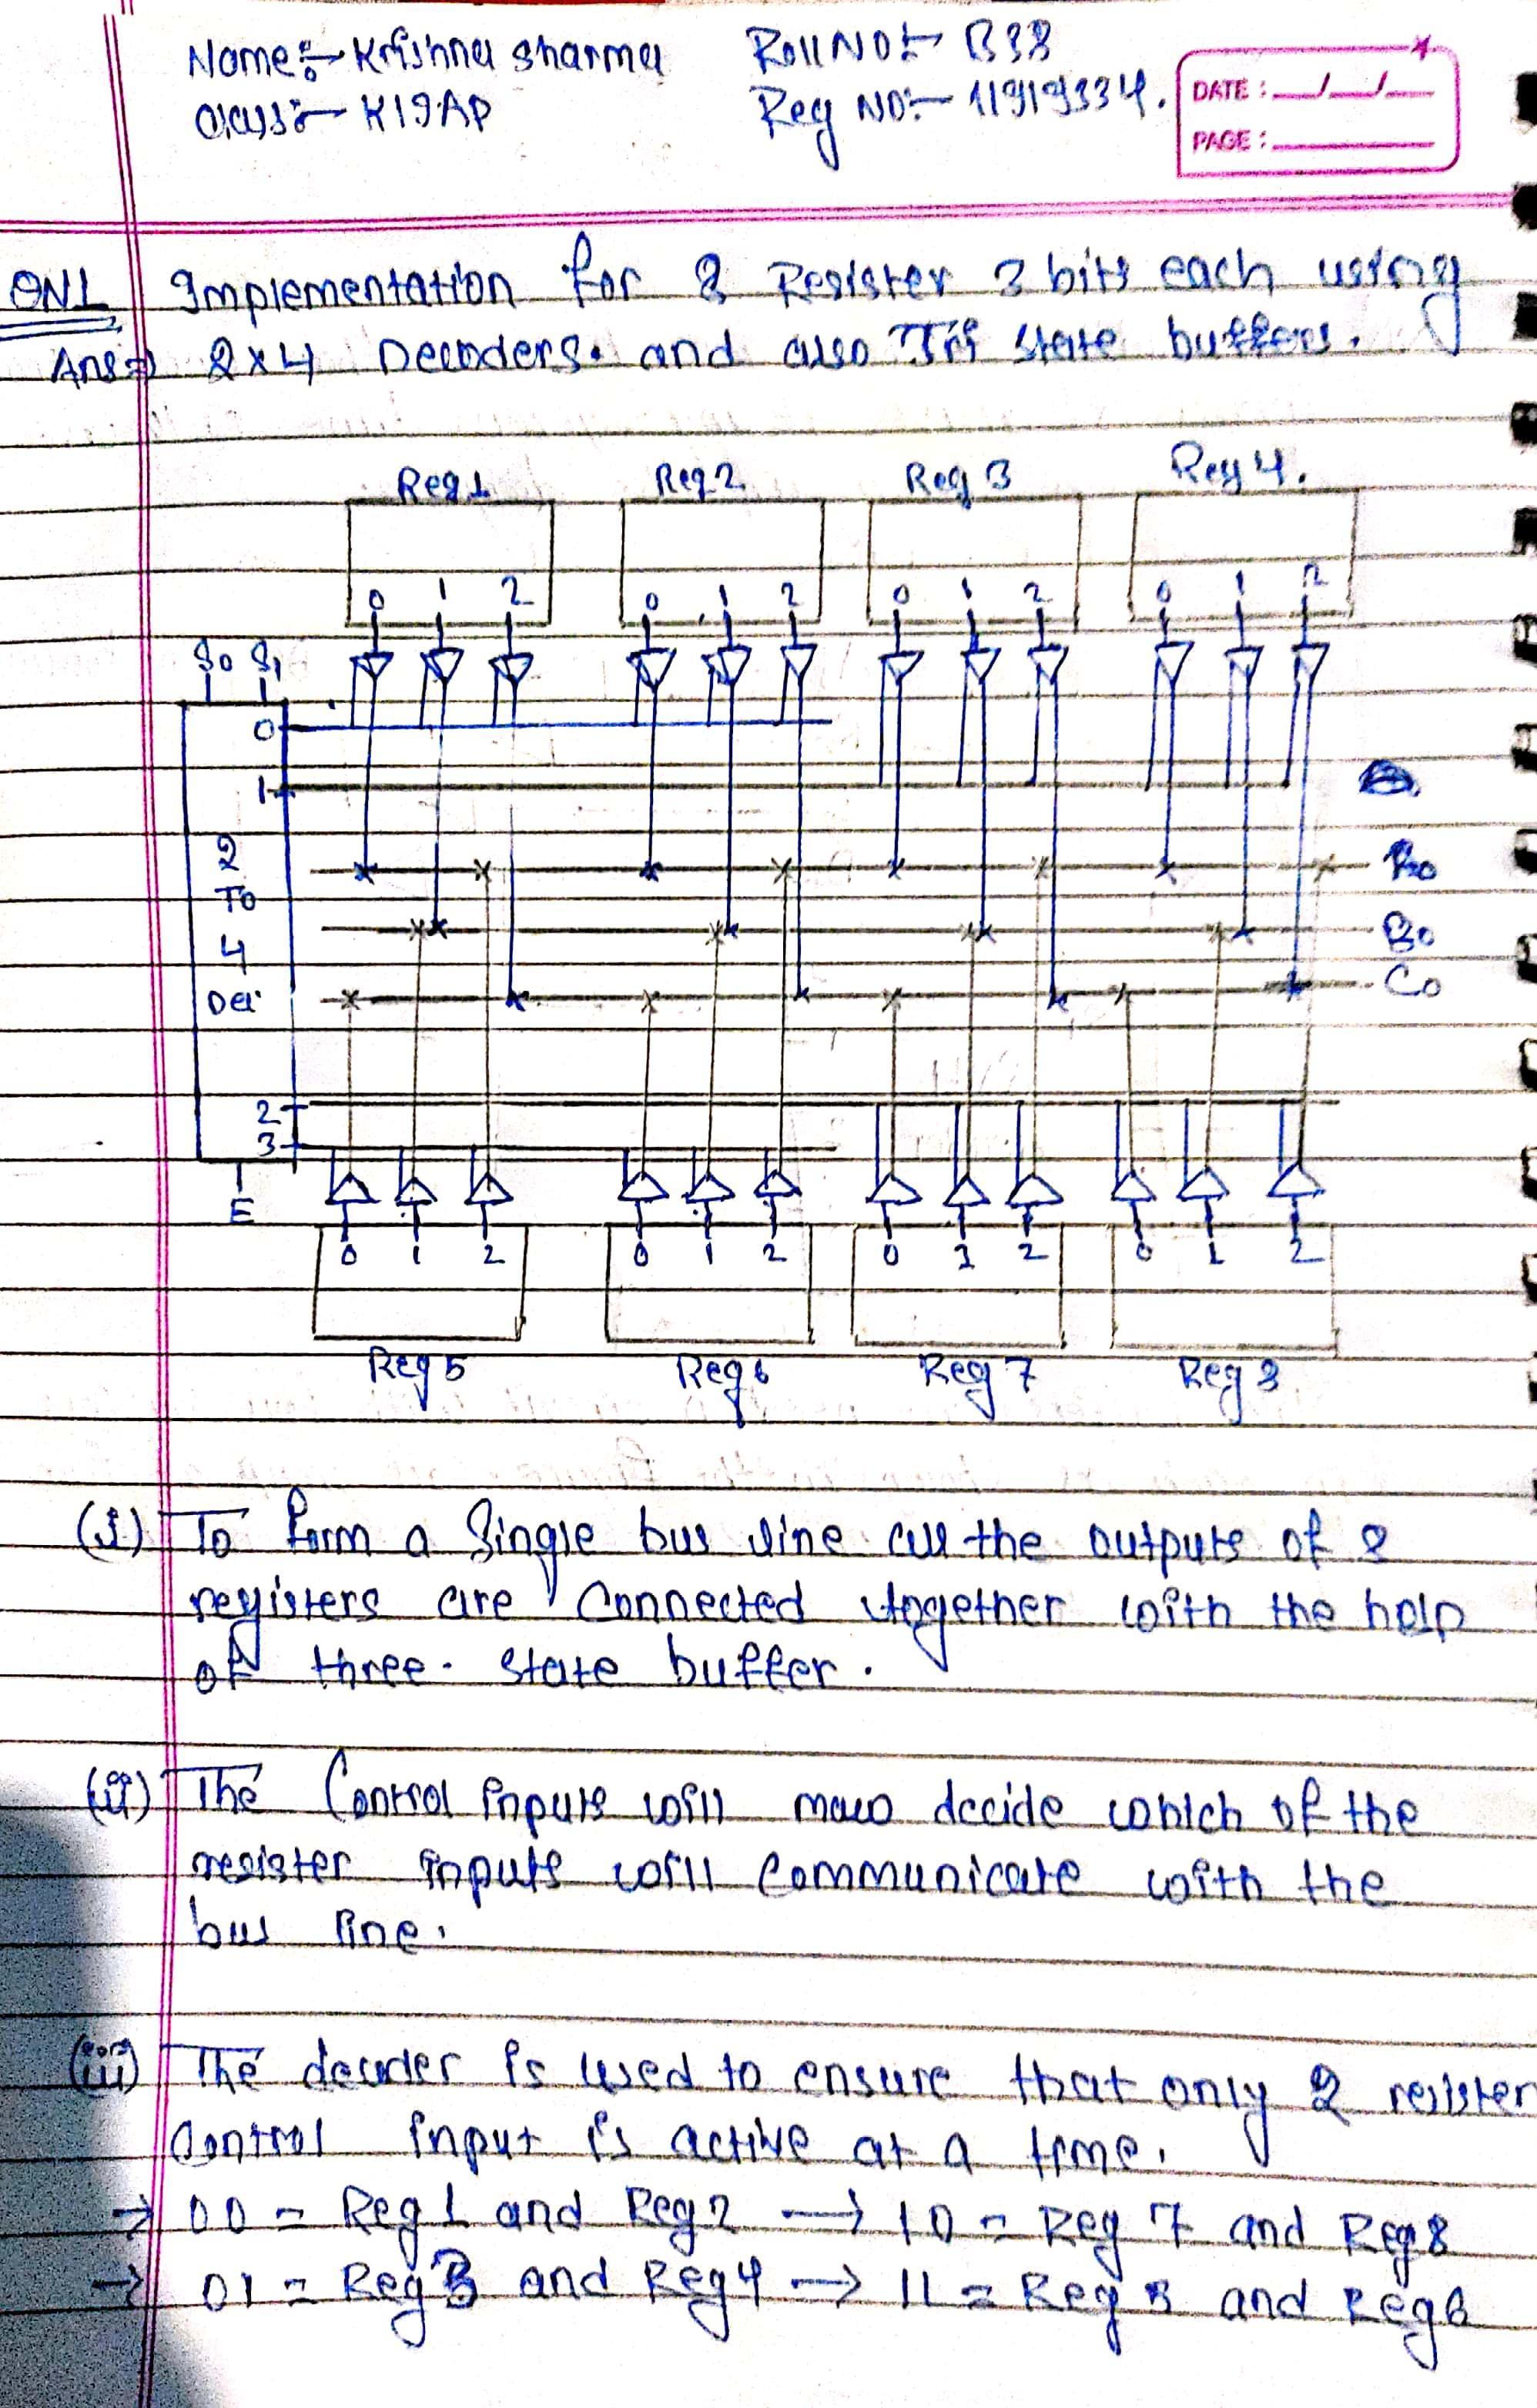 Name:- Krishna Sharma Roll NO:- B38
Class:- K19AP Reg NO:- 11919334.
DATE : __/__/__
PAGE :
QN1 Implementation for 8 Resister 3 bits each using
Ans⇒ 2x4 Decoders. and also Tri state buffers.
Reg 1 Reg 2 Reg 3 Reg 4.
0 1 2 0 1 2 0 1 2 0 1 2
S0 S1
0
1
2 A0
To
4 B0
Dec C0
2
3
E
0 1 2 0 1 2 0 1 2 0 1 2
Reg 5 Reg 6 Reg 7 Reg 8
(i) To form a Single bus line all the outputs of 8
registers are connected together with the help
of three-state buffer.
(ii) The Control inputs will decide which of the
resister inputs will communicate with the
bus line.
(iii) The decoder is used to ensure that only 2 resister
Control input is active at a time.
→ 00 = Reg 1 and Reg 2 → 10 = Reg 7 and Reg 8
→ 01 = Reg 3 and Reg 4 → 11 = Reg 5 and Reg 6